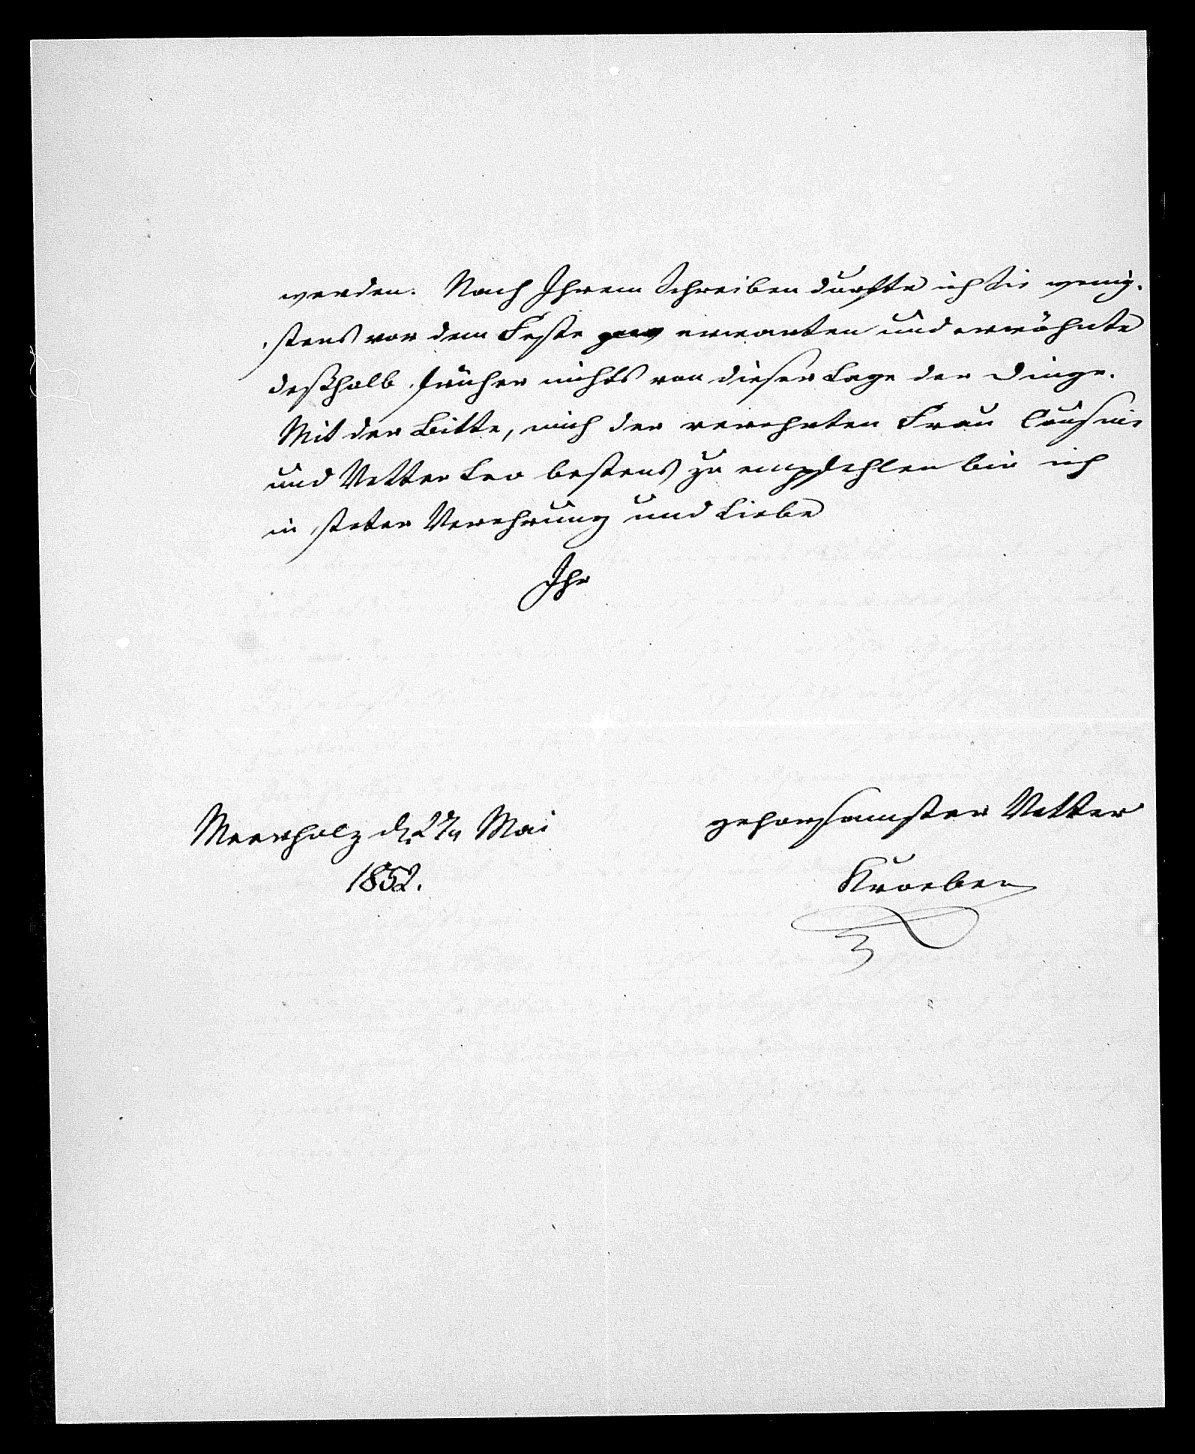 werden. Nach Ihrem Schreiben durfte ich Sie wenig-
stens vor dem Feste erwarten und erwähnte
deßhalb früher nichts von dieser Lage der Dinge.
Mit der Bitte, mich der verehrten Frau Cousine
und Vetter Leo bestens zu empfehlen bin ich
in steter Verehrung und Liebe
Ihr
gehorsamster Vetter
Meerholz d. 27n Mai
1852.
Kroeben